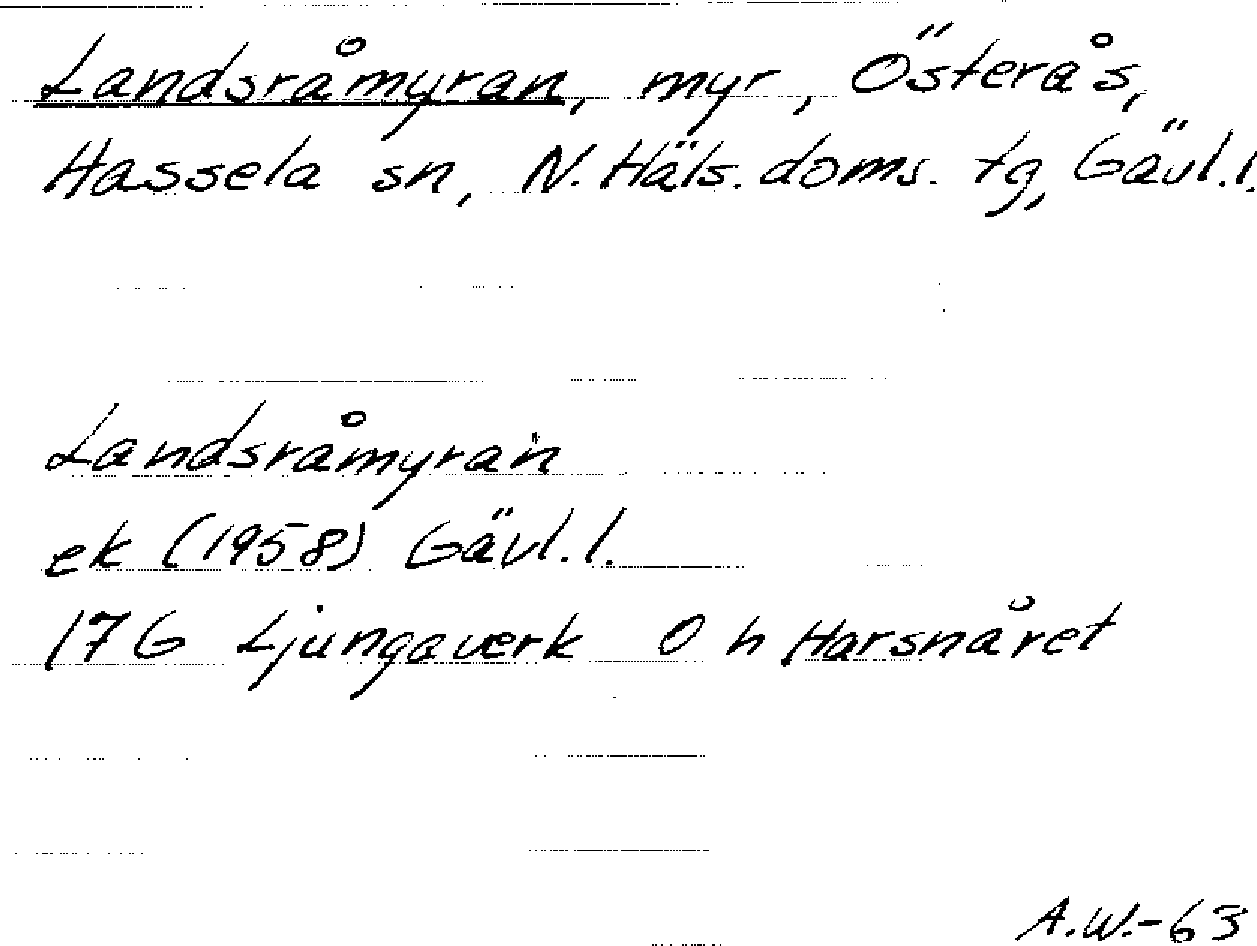 Landsråmyran, myr, Österås,
Hassela sn, N. Häls. doms. tg, Gävl. l.
Landsråmyran
ek (1958) Gävl. l.
17G Ljungaverk O h Harsnåret
A.W.-63